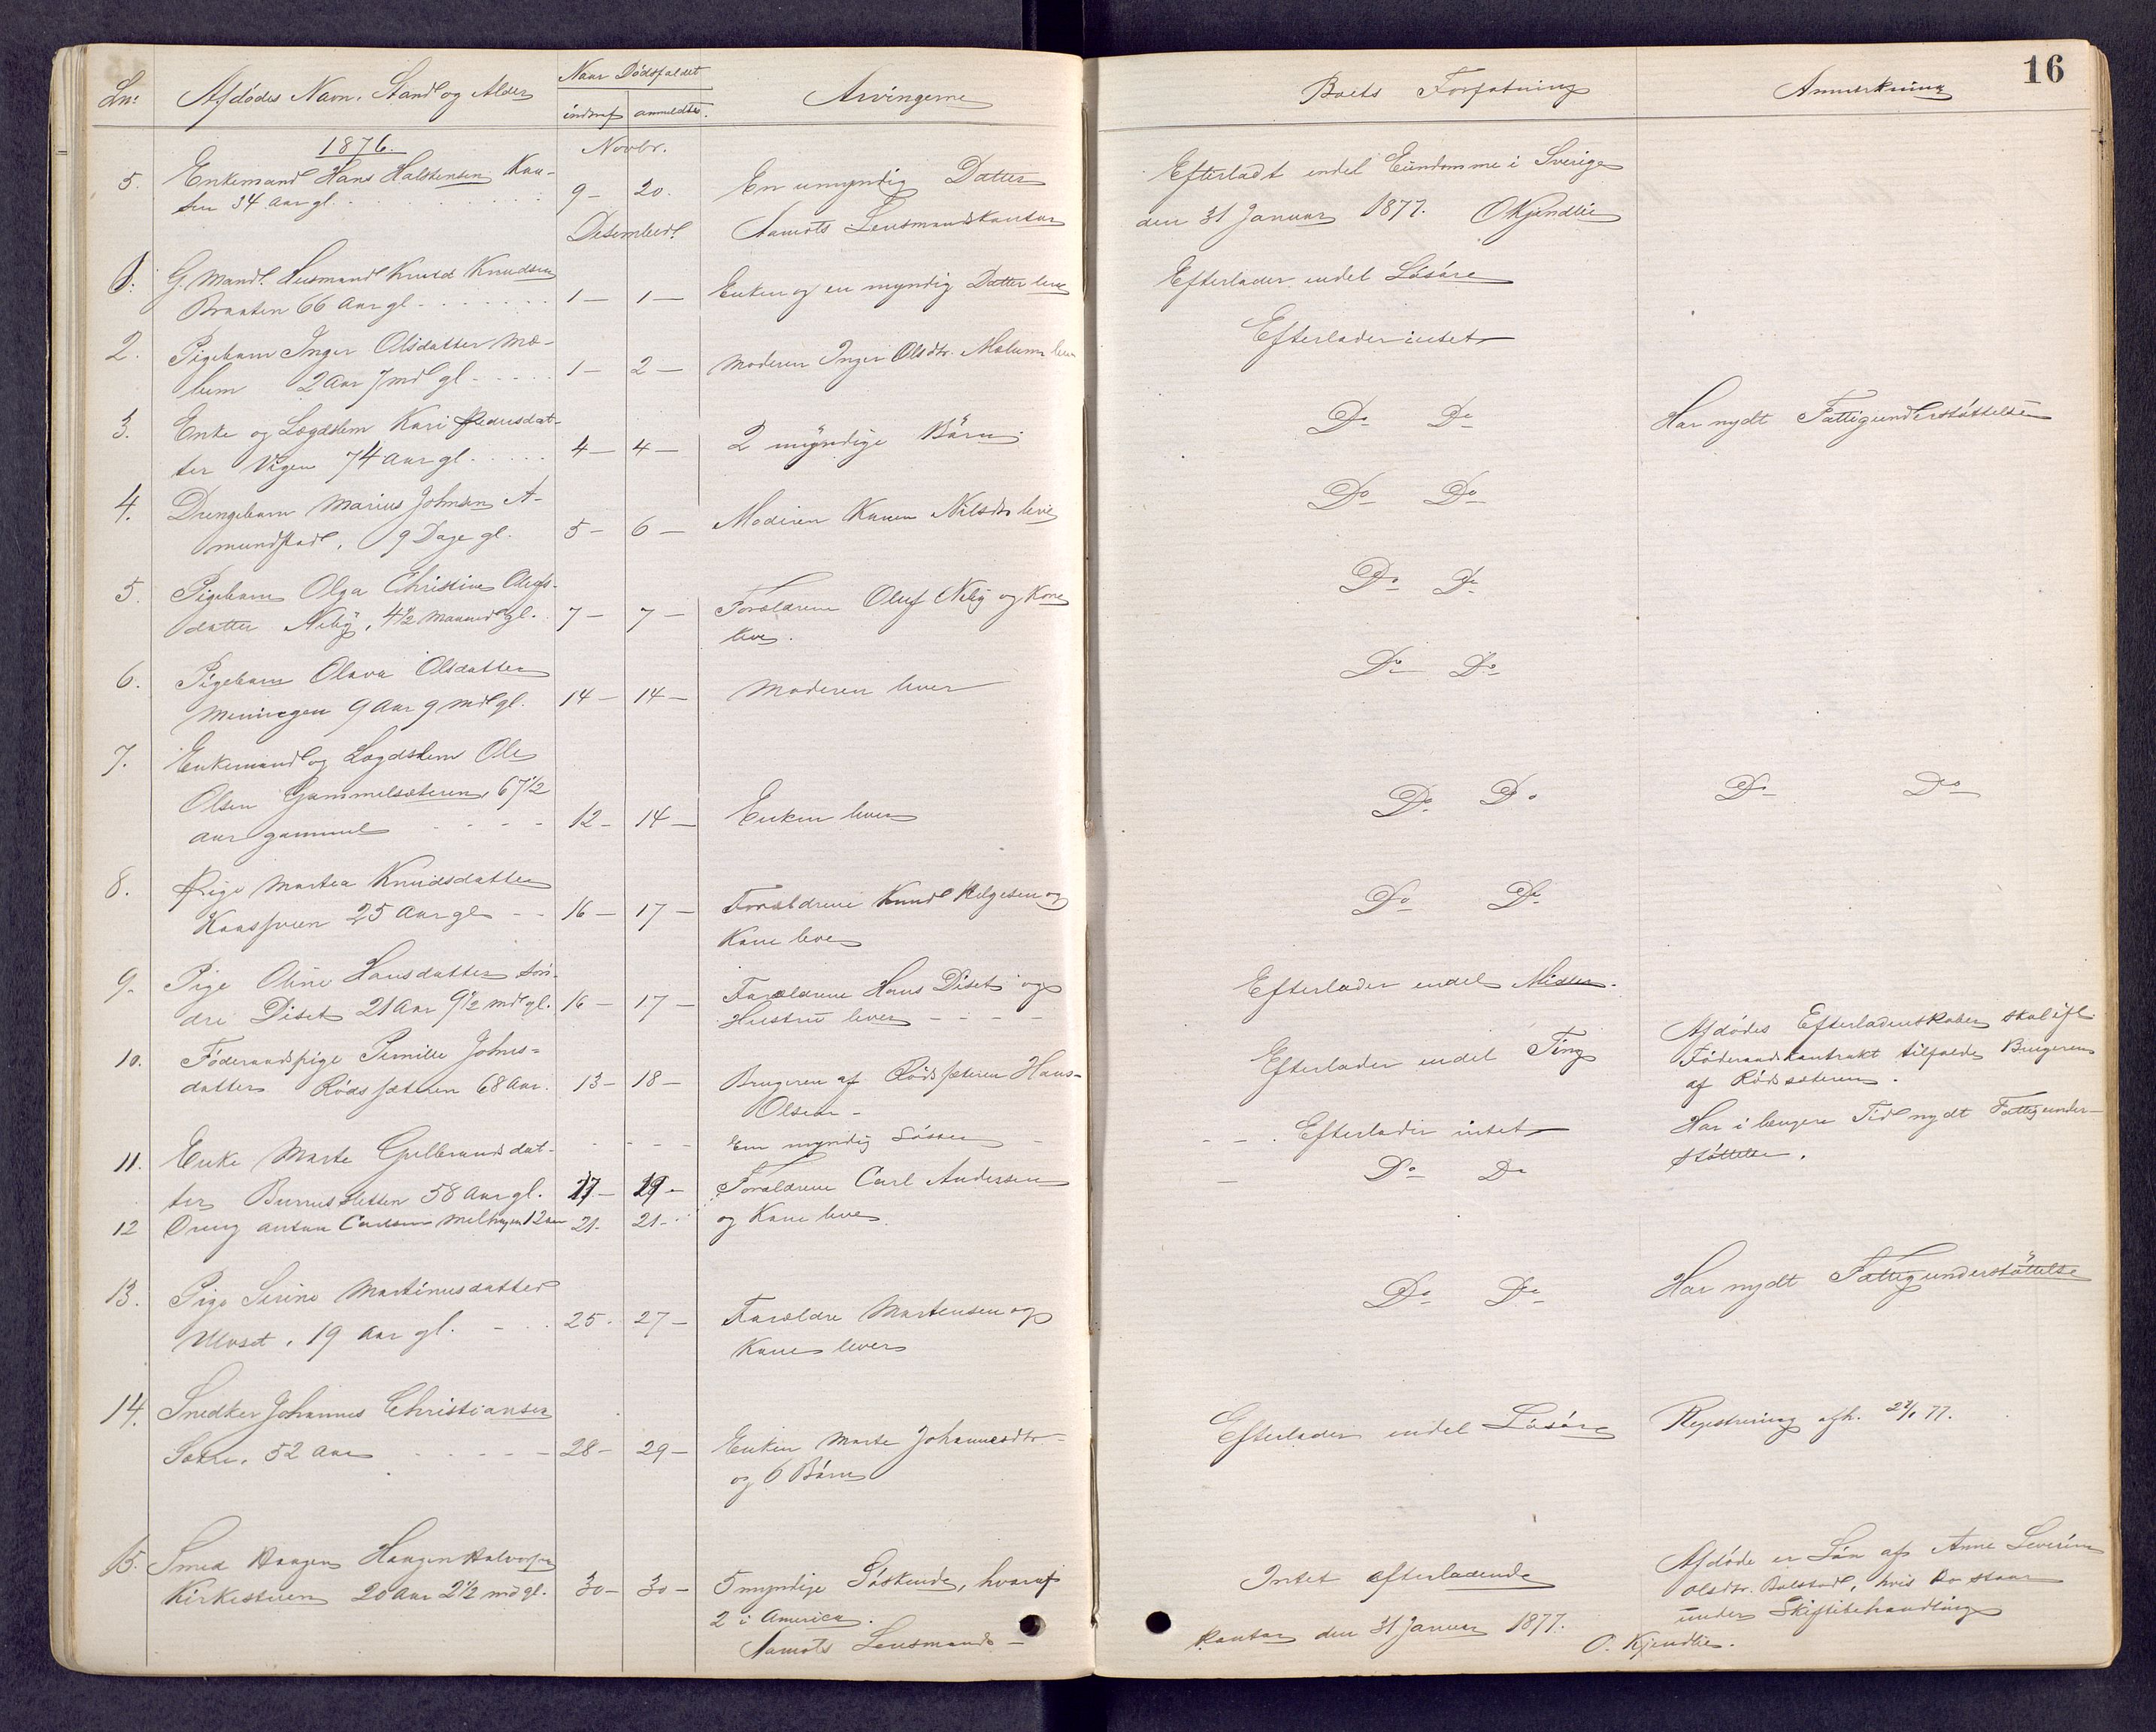 16
Ln: Afdødes Navn, Stand og Alder Naar Dødsfaldet Arvingerne Boets Forfatning Anmærkning
indtraf anmeldtes.
1876. Novbr.
5. Enkemand Hans Halstensen
34 Aar gl. 9 - 20. En umyndig Datter Efterladt endel Eiendomme i Sverige
Desember. Aamots Lensmandskontor den 31 Januar 1877. O Kjendlie
1. G. Mand. Husmand Knud Knudsen
Braaten 66 Aar gl 1 - 1 - Enken og en myndig Datter lever Efterlader endel Løsøre
2. Pigebarn Inger Olsdatter Mæ-
lum 2 Aar 7 md gl 1 - 2 - Moderen Inger Olsdtr. Mælum lever Efterlader intet
3. Enke og Lægdslem Kari Pedersdat-
ter Vigen 74 Aar gl. 4 - 4 - 2 myndige Børn Do Do Har nydt Fattigunderstøttelse
4. Drengebarn Marius Johnsen A-
mundstad, 9 Dage gl. 5 - 6 - Moderen Karen Nilsdtr lever Do Do
5. Pigebarn Olga Christine Olufs-
datter Neby, 4 1/2 Maaned gl. 7 - 7 - Forældrene Oluf Neby og Kone
lever. Do Do
6. Pigebarn Olava Olsdatter
9 Aar 9 md gl. 14 - 14 - Moderen lever Do Do
7. Enkemand og Lægdslem Ole
Olsen Gammelsæteren, 67 1/2
Aar gammel 12 - 14 - Enken lever Do Do Do Do
8. Pige Martea Knudsdatter
25 Aar gl 16 - 17 - Forældrene Knud Helgesen og
Kone lever Do Do
9. Pige Oline Hansdatter søn-
dre Diset 21 Aar 9 1/2 md gl. 16 - 17 - Forældrene Hans Diset og
Hustru lever Efterlader endel Midler.
10. Føderaadspige Pernille Johns-
datter Rødssæteren 68 Aar. 13 - 18 - Brugeren af Rødssæteren Hans
Olsen - Efterlader endel Ting Afdødes Efterladenskaber skal ifl.
Føderaadskontrakt tilfalde Brugeren
af Rødssæteren.
11. Enke Marte Gulbrandsdat-
ter 58 Aar gl. 17 - 19 - En myndig Søster Efterlader intet Har i længere Tid nydt Fattigunder-
støttelse.
12 Dreng Anton Carlsen Melhagen 12 Aar 21. 21 - Forældrene Carl Andersen
og Kone lever Do Do
13. Pige Serine Martinusdatter
Ulvset, 19 Aar gl. 25. 27 - Forældre Martensen og
Kone lever Do Do Har nydt Fattigunderstøttelse
14. Snedker Johannes Christiansen
Sætre, 52 Aar 28 - 29 - Enken Marte Johannesdtr
og 6 Børn Efterlader endel Løsøre Registrering afh. 77.
15. Smed Haagen Halvorsen
Kirkesteen 20 Aar 2 1/2 md gl. 30 - 30 - 5 myndige Søskende, hvoraf
2 i America. Intet efterladende Afdøde er Søn af Anne Severine
Olsdtr. Bolstad, hvis Bo staar
under Skiftebehandling
Aamots Lensmands- kontor den 31 Januar 1877. O. Kjendlie.